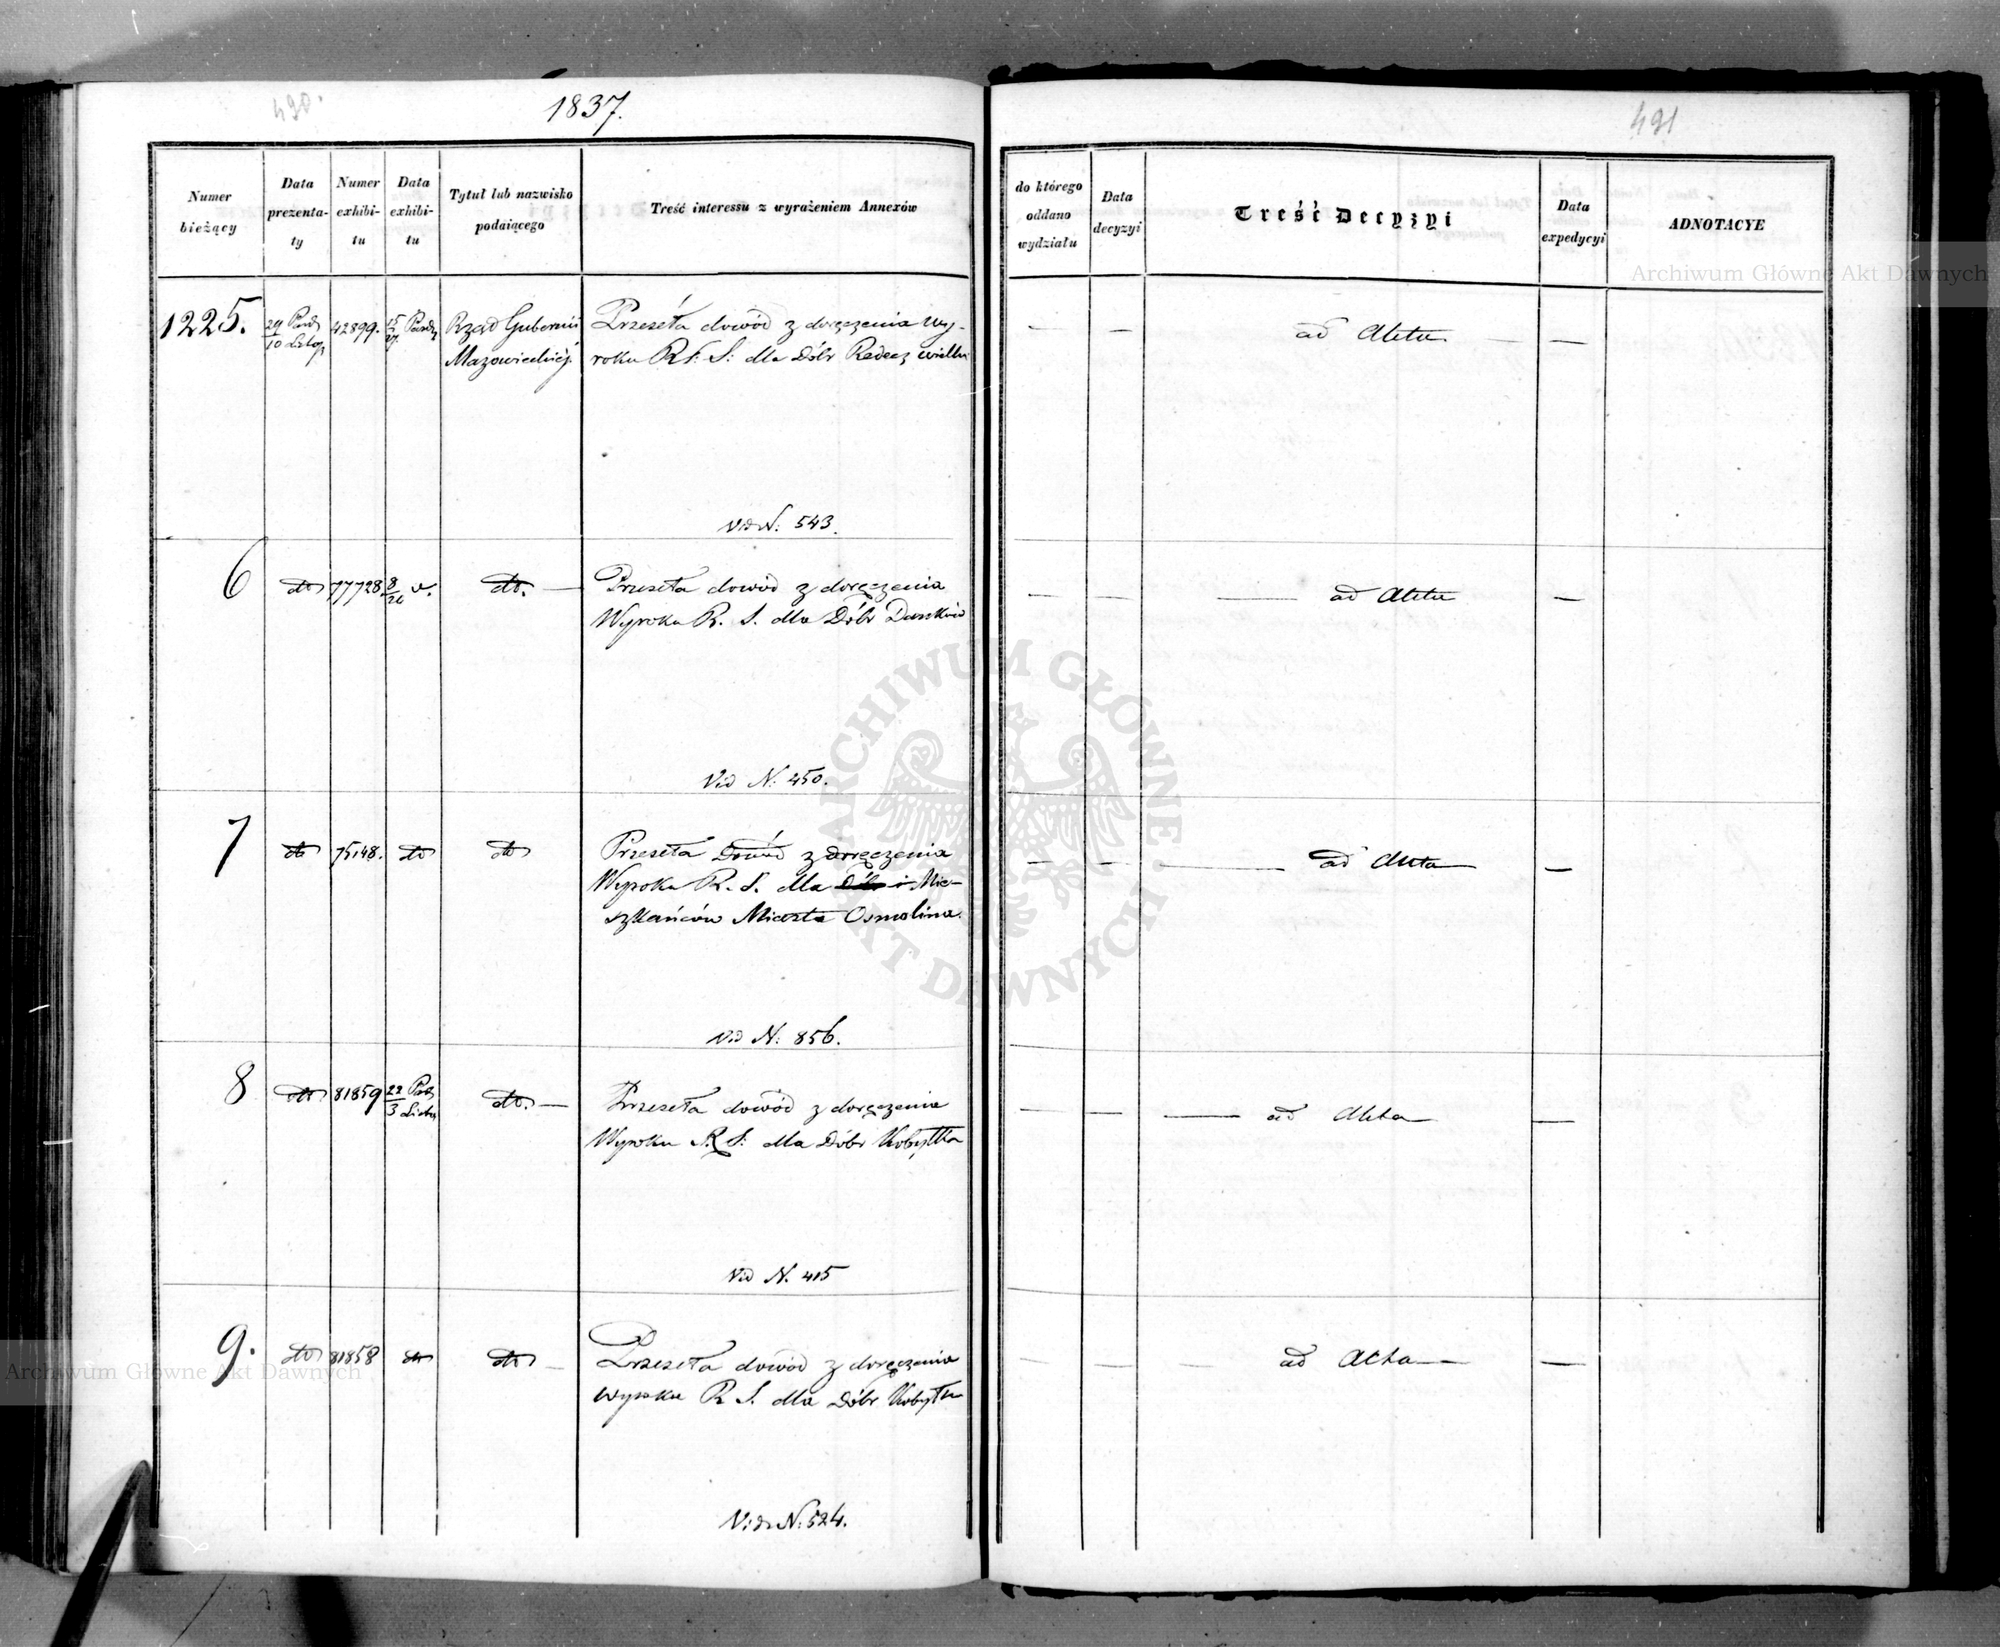 490.
1837.
Numer bieżący
Data prezentaty
Numer exhibitu
Data exhibitu
Tytuł lub nazwisko podaiącego
Treść interessu z wyrażeniem Annexów
1225.
29 Paźd
10 Listop
42899.
15 Paźdz
27
Rząd Gubernii
Mazowieckiéj.
Przeseła dowód z doręczenia Wy-
roku R: S: dla Dóbr Redecz wielki
Vid N: 543.
6
dto
77728
8
20
dto.
Przeseła dowód z doręczenia
Wyroku R. S. dla Dóbr Dańków
Vid N: 450.
7
dto
75148.
dto
dto
Przeseła Dowód z doręczenia
Wyroku R. S. dla Dóbr i Mie-
szkańców Miasta Osmolina.
Vid N: 856.
8
dto
81859
22 Paź
3 Listo
dto.
Przeseła dowód z doręczenia
Wyroku R. S: dla Dóbr Kobyłka
Vid N. 415
9.
dto
81858
dto
dto
Przeseła dowód z doręczenia
Wyroku R. S. dla Dóbr Kobyłki
Vide N: 524.
491
do którego oddano wydziału
Data decyzyi
Treść Decyzyi
Data expedycyi
ADNOTACYE
ad Akta
ad Akta
ad Akta
ad Akta
ad Acta
Archiwum Główne Akt Dawnych
ARCHIWUM GŁÓWNE AKT DAWNYCH
Archiwum Główne Akt Dawnych